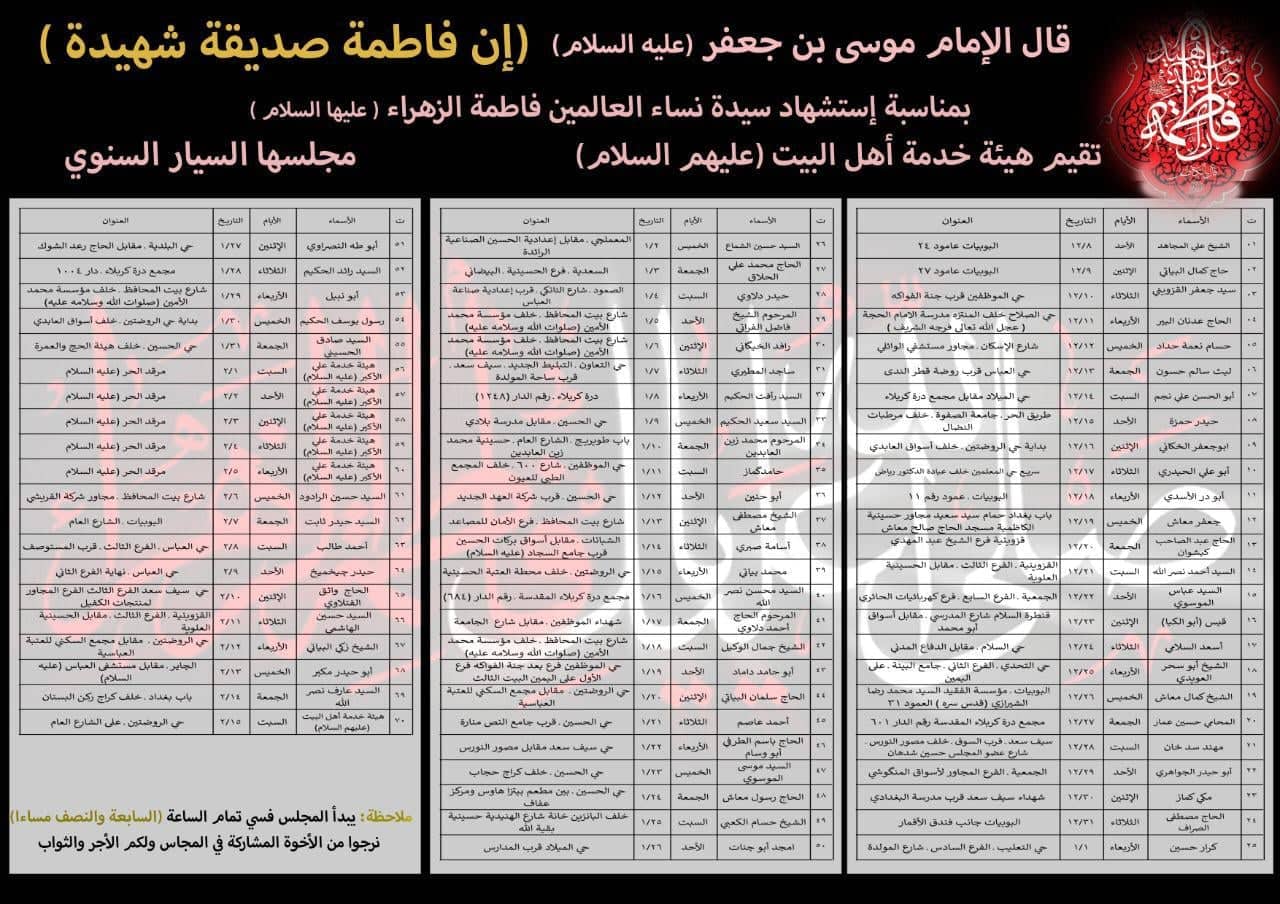 قال الإمام موسى بن جعفر (عليه السلام) (إن فاطمة صديقة شهيدة )
بمناسبة إستشهاد سيدة نساء العالمين فاطمة الزهراء ( عليها السلام )
تقيم هيئة خدمة أهل البيت (عليهم السلام) مجلسها السيار السنوي
ت الأسماء الأيام التاريخ العنوان
٠١ الشيخ علي المجاهد الأحد ١٢/٨ البوبيات عامود ٢٤
٠٢ حاج كمال البياتي الإثنين ١٢/٩ البوبيات عامود ٢٧
٠٣ سيد جعفر القزويني الثلاثاء ١٢/١٠ حي الموظفين قرب جنة الفواكه
٠٤ الحاج عدنان البير الأربعاء ١٢/١١ حي الصلاح خلف المنتزه مدرسة الامام الحجة
( عجل الله تعالى فرجه الشريف )
٠٥ حسام نعمة حداد الخميس ١٢/١٢ شارع الإسكان . مجاور مستشفي الوائلي
٠٦ ليث سالم حسون الجمعة ١٢/١٣ حي العباس قرب روضة قطر الندى
٠٧ أبو الحسن علي نجم السبت ١٢/١٤ حي الميلاد مقابل مجمع درة كربلاء
٠٨ حيدر حمزة الأحد ١٢/١٥ طريق الحر . جامعة الصفوة . خلف مرطبات
النضال
٠٩ ابوجعفر الخكاني الإثنين ١٢/١٦ بداية حي الروضتين . خلف أسواق العابدي
١٠ أبو علي الحيدري الثلاثاء ١٢/١٧ سريع حي المعلمين خلف عيادة الدكتور رياض
١١ أبو در الأسدي الأربعاء ١٢/١٨ البوبيات . عمود رقم ١١
١٢ جعفر معاش الخميس ١٢/١٩ باب بغداد حمام سيد سعيد مجاور حسينية
الكاظمية مسجد الحاج صالح معاش
١٣ الحاج عبد الصاحب
كيشوان الجمعة ١٢/٢٠ قزوينية فرع الشيخ عبد المهدي
١٤ السيد أحمد نصر الله السبت ١٢/٢١ القزوينية . الفرع الثالث . مقابل الحسينية
العلوية
١٥ السيد عباس
الموسوي الأحد ١٢/٢٢ الجمعية . الفرع السابع . فرع كهربائيات الحائري
١٦ قيس (أبو الكبا) الإثنين ١٢/٢٣ قنطرة السلام شارع المدرسي . مقابل أسواق
أبو محمد
١٧ أسعد السلامي الثلاثاء ١٢/٢٤ حي السلام . مقابل الدفاع المدني
١٨ الشيخ أبو سحر
العويدي الأربعاء ١٢/٢٥ حي التحدي . الفرع الثاني . جامع البينة . على
اليمين
١٩ الشيخ كمال معاش الخميس ١٢/٢٦ البوبيات . مؤسسة الفقيد السيد محمد رضا
الشيرازي (قدس سره ) العمود ٣١
٢٠ المحامي حسين عمار الجمعة ١٢/٢٧ مجمع درة كربلاء المقدسة رقم الدار ٦٠١
٢١ مهند سد خان السبت ١٢/٢٨ سيف سعد . قرب السوق . خلف مصور النورس .
شارع عضو المجلس حسين شدهان
٢٢ أبو حيدر الجواهري الأحد ١٢/٢٩ الجمعية . الفرع المجاور لأسواق المنگوشي
٢٣ مكي كماز الإثنين ١٢/٣٠ شهداء سيف سعد قرب مدرسة البغدادي
٢٤ الحاج مصطفى
الصراف الثلاثاء ١٢/٣١ البوبيات جانب فندق الأقمار
٢٥ كرار حسين الأربعاء ١/١ حي التعليب . الفرع السادس . شارع المولدة
ت الأسماء الأيام التاريخ العنوان
٢٦ السيد حسين الشماع الخميس ١/٢ المعملجي . مقابل إعدادية الحسين الصناعية
الرائدة
٢٧ الحاج محمد علي
الحلاق الجمعة ١/٣ السعدية . فرع الحسينية . البيضاني
٢٨ حيدر دلاوي السبت ١/٤ الصمود . شارع التانكي . قرب إعدادية صناعة
العباس
٢٩ المرحوم الشيخ
فاضل الفراتي الأحد ١/٥ شارع بيت المحافظ . خلف مؤسسة محمد
الأمين (صلوات الله وسلامه عليه)
٣٠ رافد الخيكاني الإثنين ١/٦ شارع بيت المحافظ . خلف مؤسسة محمد
الأمين (صلوات الله وسلامه عليه)
٣١ ساجد المطيري الثلاثاء ١/٧ حي التعاون . التبليط الجديد . سيف سعد .
قرب ساحة المولدة
٣٢ السيد رأفت الحكيم الأربعاء ١/٨ درة كربلاء . رقم الدار (١٢٤٨)
٣٣ السيد سعيد الحكيم الخميس ١/٩ حي الحسين . مقابل مدرسة بلادي
٣٤ المرحوم محمد زين
العابدين الجمعة ١/١٠ باب طويريج . الشارع العام . حسينية محمد
زين العابدين
٣٥ حامدگماز السبت ١/١١ حي الموظفين . شارع ٦٠٠ . خلف المجمع
الطبي للعيون
٣٦ أبو حنين الأحد ١/١٢ حي الحسين . قرب شركة العهد الجديد
٣٧ الشيخ مصطفى
معاش الإثنين ١/١٣ شارع بيت المحافظ . فرع الأمان للمصاعد
٣٨ أسامة صبري الثلاثاء ١/١٤ الشبانات . مقابل أسواق بركات الحسين
قرب جامع السجاد (عليه السلام)
٣٩ محمد بياتي الأربعاء ١/١٥ حي الروضتين . خلف محطة العتبة الحسينية
٤٠ السيد محسن نصر
الله الخميس ١/١٦ مجمع درة كربلاء المقدسة . رقم الدار (٦٨٤)
٤١ المرحوم الحاج
أحمد دلاوي الجمعة ١/١٧ شهداء الموظفين . مقابل شارع الجامعة
٤٢ الشيخ جمال الوكيل السبت ١/١٨ شارع بيت المحافظ . خلف مؤسسة محمد
الأمين (صلوات الله وسلامه عليه)
٤٣ أبو حامد داماد الأحد ١/١٩ حي الموظفين فرع بعد جنة الفواكه فرع
الأول على اليمين البيت الثالث
٤٤ الحاج سلمان البياتي الإثنين ١/٢٠ حي الروضتين . مقابل مجمع السكني للعتبة
العباسية
٤٥ أحمد عاصم الثلاثاء ١/٢١ حي الحسين . قرب جامع النص منارة
٤٦ الحاج باسم الطرفي
أبو وسام الأربعاء ١/٢٢ حي سيف سعد مقابل مصور النورس
٤٧ السيد موسى
الموسوي الخميس ١/٢٣ حي الحسين . خلف كراج حجاب
٤٨ الحاج رسول معاش الجمعة ١/٢٤ حي الحسين . بين مطعم بيتزا هاوس ومركز
عفاف
٤٩ الشيخ حسام الكعبي السبت ١/٢٥ خلف البانزين خانة شارع الهنيدية حسينية
بقية الله
٥٠ امجد أبو جنات الأحد ١/٢٦ حي الميلاد قرب المدارس
ت الأسماء الأيام التاريخ العنوان
٥١ أبو طه النصراوي الإثنين ١/٢٧ حي البلدية . مقابل الحاج رعد الشوك
٥٢ السيد رائد الحكيم الثلاثاء ١/٢٨ مجمع درة كربلاء . دار ١٠٠٤
٥٣ أبو نبيل الأربعاء ١/٢٩ شارع بيت المحافظ . خلف مؤسسة محمد
الأمين (صلوات الله وسلامه عليه)
٥٤ رسول يوسف الحكيم الخميس ١/٣٠ بداية حي الروضتين . خلف أسواق العابدي
٥٥ السيد صادق
الحسيني الجمعة ١/٣١ حي الحسين . خلف هيئة الحج والعمرة
٥٦ هيئة خدمة علي
الأكبر (عليه السلام) السبت ٢/١ مرقد الحر (عليه السلام
٥٧ هيئة خدمة علي
الأكبر (عليه السلام) الأحد ٢/٢ مرقد الحر (عليه السلام
٥٨ هيئة خدمة علي
الأكبر (عليه السلام) الإثنين ٢/٣ مرقد الحر (عليه السلام
٥٩ هيئة خدمة علي
الأكبر (عليه السلام) الثلاثاء ٢/٤ مرقد الحر (عليه السلام
٦٠ هيئة خدمة علي
الأكبر (عليه السلام) الأربعاء ٢/٥ مرقد الحر (عليه السلام
٦١ السيد حسين الرادود الخميس ٢/٦ شارع بيت المحافظ . مجاور شركة القريشي
٦٢ السيد حيدر ثابت الجمعة ٢/٧ البوبيات . الشارع العام
٦٣ أحمد طالب السبت ٢/٨ حي العباس . الفرع الثالث . قرب المستوصف
٦٤ حيدر چيخميخ الأحد ٢/٩ حي العباس . نهاية الفرع الثاني
٦٥ الحاج واثق
الفتلاوي الإثنين ٢/١٠ حي سيف سعد الفرع الثالث الفرع المجاور
لمنتجات الكفيل
٦٦ السيد حسين
الهاشمي الثلاثاء ٢/١١ القزوينية . الفرع الثالث . مقابل الحسينية
العلوية
٦٧ الشيخ زكي البياتي الأربعاء ٢/١٢ حي الروضتين . مقابل مجمع السكني للعتبة
العباسية
٦٨ أبو حيدر مكبر الخميس ٢/١٣ الجاير . مقابل مستشفى العباس (عليه
السلام)
٦٩ السيد عارف نصر
الله الجمعة ٢/١٤ باب بغداد . خلف كراج ركن البستان
٧٠ هيئة خدمة أهل البيت
(عليهم السلام) السبت ٢/١٥ حي الروضتين . على الشارع العام
ملاحظة: يبدأ المجلس فسي تمام الساعة (السابعة والنصف مساءا)
نرجوا من الأخوة المشاركة في المجاس ولكم الأجر والثواب